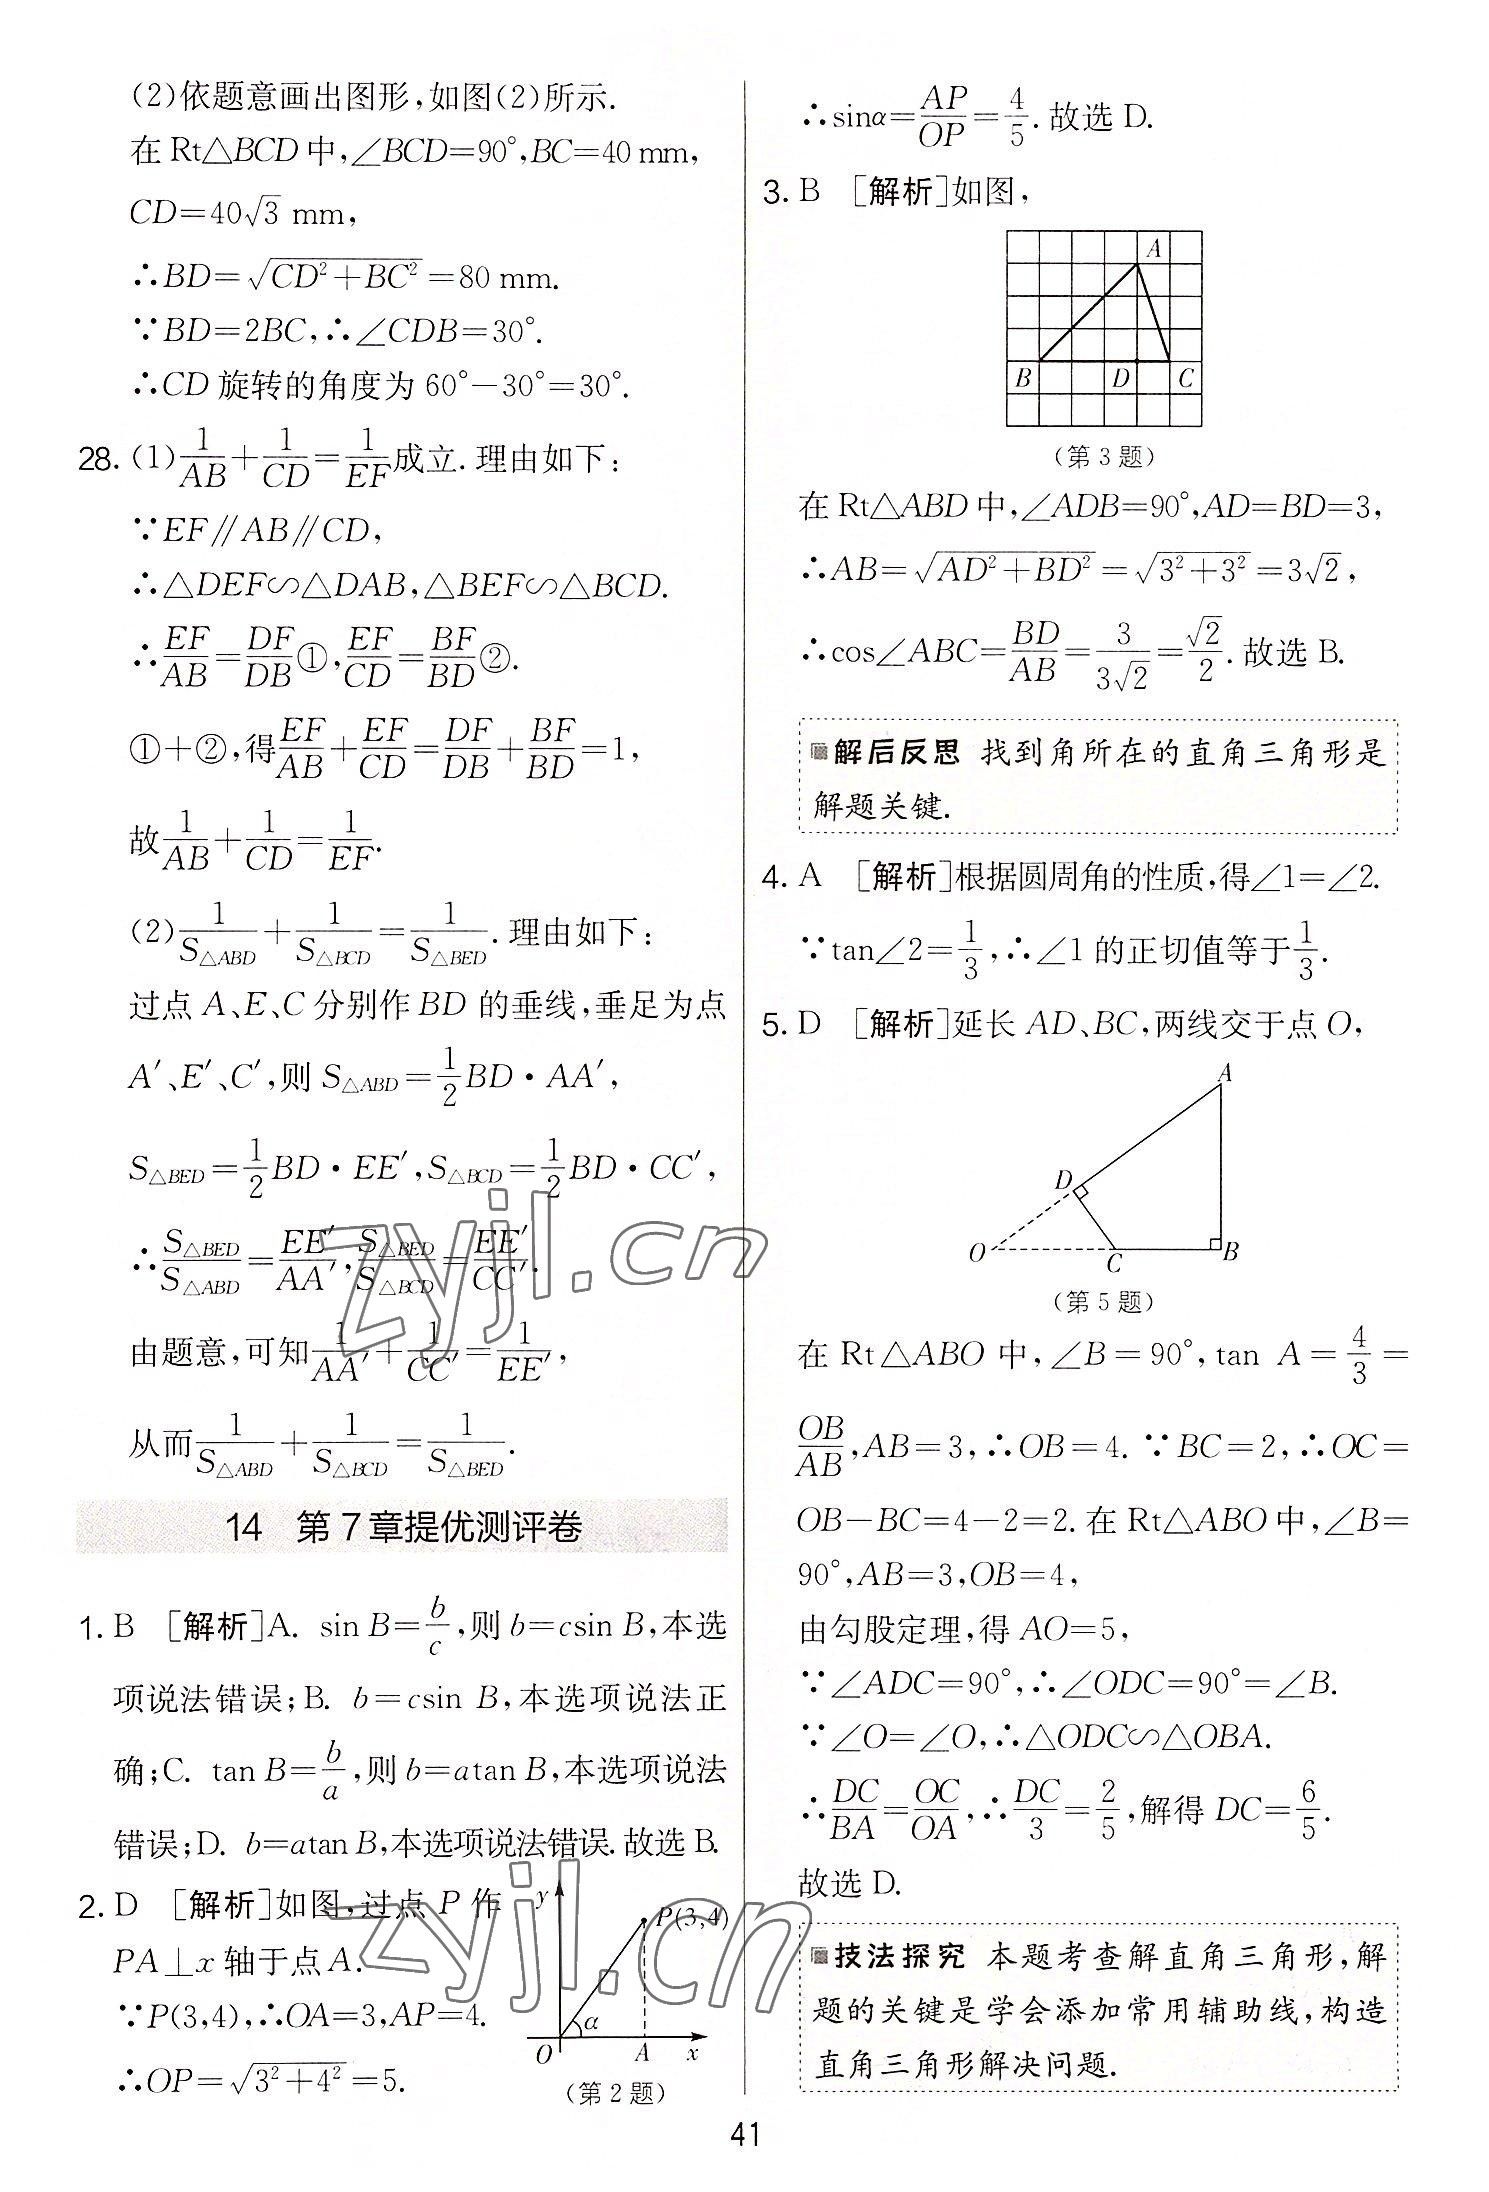 (2)依题意画出图形,如图(2)所示.
在 Rt△BCD 中,∠BCD=90°,BC=40 mm,
CD=40√3 mm,
∴BD=√(CD²+BC²)=80 mm.
∵BD=2BC,∴∠CDB=30°.
∴CD 旋转的角度为 60°-30°=30°.
28. (1) 1/AB+1/CD=1/EF成立. 理由如下:
∵EF∥AB∥CD,
∴△DEF∽△DAB,△BEF∽△BCD.
∴EF/AB=DF/DB①,EF/CD=BF/BD②.
①+②,得EF/AB+EF/CD=DF/DB+BF/BD=1,
故1/AB+1/CD=1/EF.
(2) 1/S△ABD+1/S△BCD=1/S△BED. 理由如下:
过点 A、E、C 分别作 BD 的垂线,垂足为点
A′、E′、C′,则 S△ABD=1/2BD·AA′,
S△BED=1/2BD·EE′,S△BCD=1/2BD·CC′,
∴S△BED/S△ABD=EE′/AA′,S△BED/S△BCD=EE′/CC′.
由题意,可知1/AA′+1/CC′=1/EE′,
从而1/S△ABD+1/S△BCD=1/S△BED.
14 第7章提优测评卷
1. B [解析]A. sin B=b/c,则 b=csin B,本选
项说法错误;B. b=csin B,本选项说法正
确;C. tan B=b/a,则 b=atan B,本选项说法
错误;D. b=atan B,本选项说法错误.故选 B.
2. D [解析]如图,过点 P 作
PA⊥x 轴于点 A.
∵P(3,4),∴OA=3,AP=4.
∴OP=√(3²+4²)=5.
y
P(3,4)
α
O A x
(第2题)
∴sinα=AP/OP=4/5.故选 D.
3. B [解析]如图,
A
B D C
(第3题)
在 Rt△ABD 中,∠ADB=90°,AD=BD=3,
∴AB=√(AD²+BD²)=√(3²+3²)=3√2,
∴cos∠ABC=BD/AB=3/(3√2)=√2/2.故选 B.
解后反思 找到角所在的直角三角形是
解题关键.
4. A [解析]根据圆周角的性质,得∠1=∠2.
∵tan∠2=1/3,∴∠1 的正切值等于1/3.
5. D [解析]延长 AD、BC,两线交于点 O,
A
D
O C B
(第5题)
在 Rt△ABO 中,∠B=90°,tan A=4/3=
OB/AB,AB=3,∴OB=4. ∵BC=2,∴OC=
OB-BC=4-2=2. 在 Rt△ABO 中,∠B=
90°,AB=3,OB=4,
由勾股定理,得 AO=5,
∵∠ADC=90°,∴∠ODC=90°=∠B.
∵∠O=∠O,∴△ODC∽△OBA.
∴DC/BA=OC/OA,∴DC/3=2/5,解得 DC=6/5.
故选 D.
技法探究 本题考查解直角三角形,解
题的关键是学会添加常用辅助线,构造
直角三角形解决问题.
41
zyjl.cn
zyjl.cn